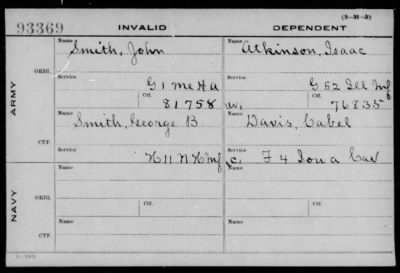 (3-31-3)
93369 INVALID DEPENDENT
Name Name
Smith, John Atkinson, Isaac
ORIG.
Service Service
G 1 Me H A G 52 Ill Inf
ARMY
Ctf. Ctf.
81758 W. 76835
Name Name
Smith, George B Davis, Cabel
CTF.
Service Service
K 11 N H Inf C. F 4 Iowa Cav
Name Name
ORIG.
NAVY
Service Ctf. Service Ctf.
Name Name
CTF.
Service Service